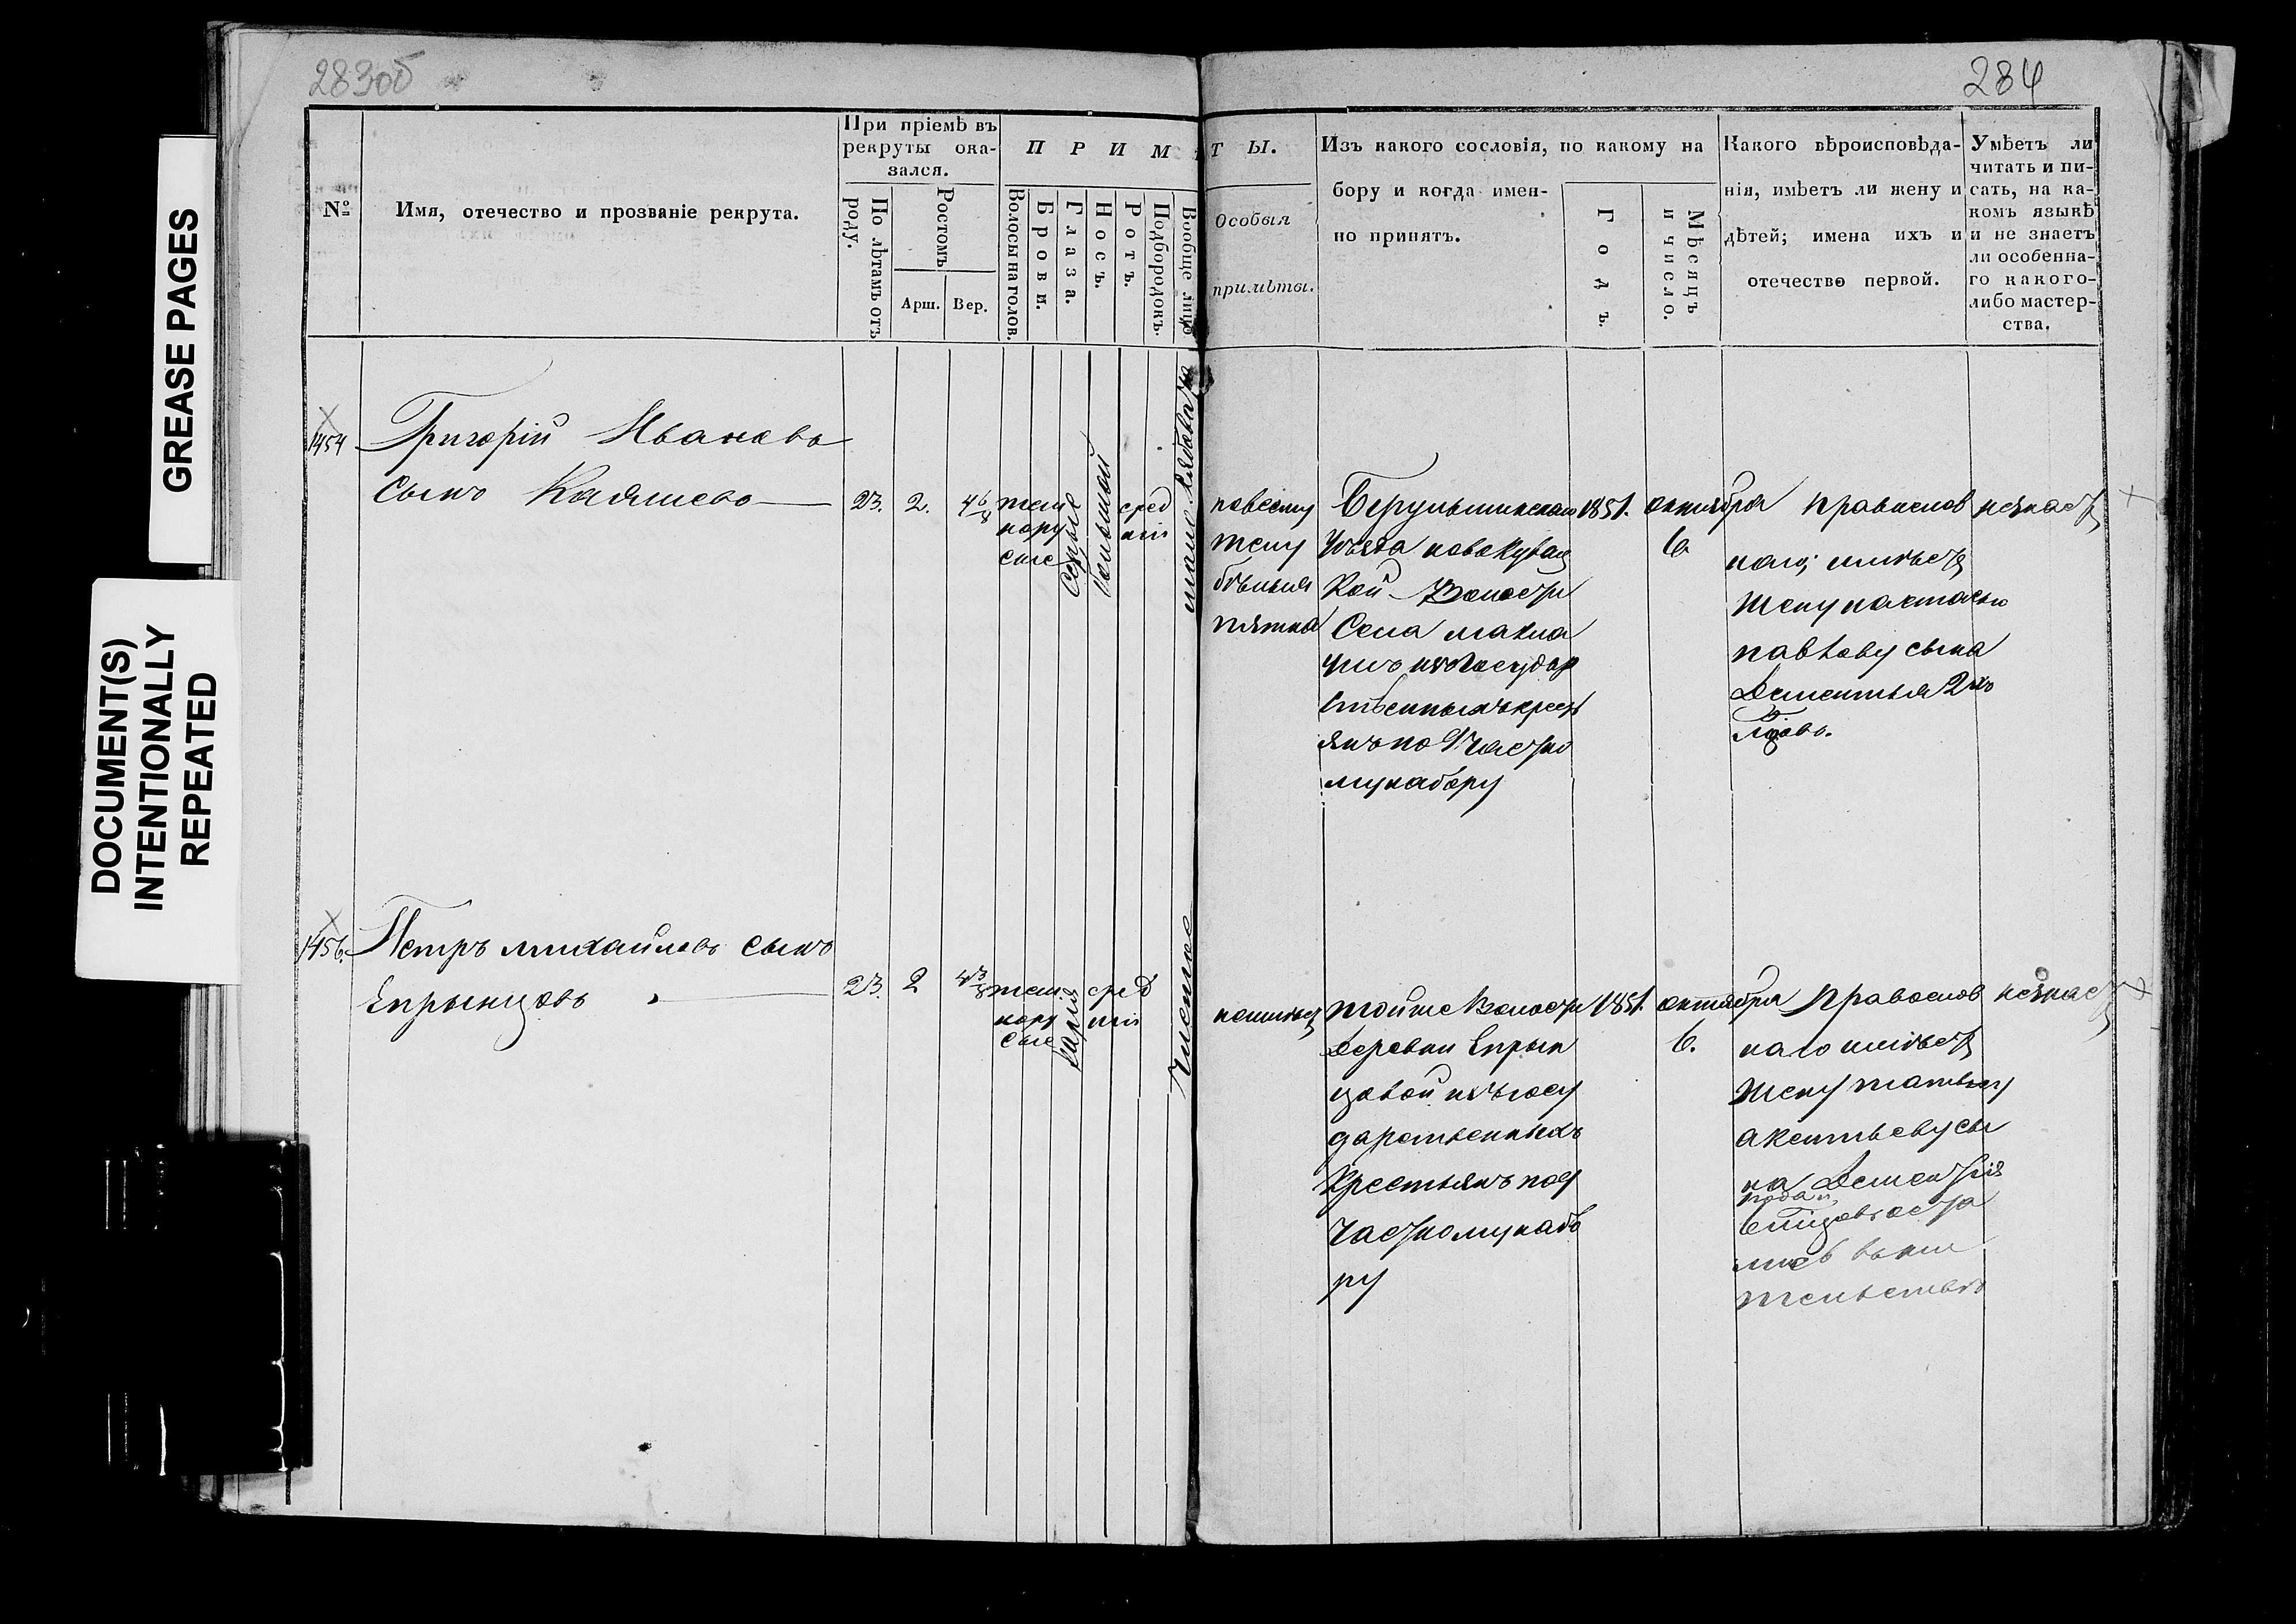 283об
284
GREASE PAGES
DOCUMENT(S)
INTENTIONALLY
REPEATED
№
Имя, отечество и прозваніе рекрута.
При пріемѣ въ
рекруты ока-
зался.
По лѣтамъ отъ
роду.
Ростомъ
Арш.
Вер.
П Р И М
Волосы на голов.
Брови.
Глаза.
Носъ.
Ротъ.
Подбородокъ.
Вообще лицо
Т Ы.
Особыя
примѣты.
Изъ какого сословія, по какому на
бору и когда имен-
но принятъ.
Годъ.
Мѣсяцъ
и число.
Какого вѣроисповѣда-
нія, имѣетъ ли жену и
дѣтей; имена ихъ и
отечество первой.
Умѣетъ ли
читать и пи-
сать, на ка-
комъ языкѣ
и не знаетъ
ли особенна-
го какого-
либо мастер-
ства.
1454
Григорій Ивановъ
сынъ
23. 2. 4 6/8
темно
русые
серые
большой
сред
ній
по всему
телу
бѣлыя
пятна
уѣзда
кой Волости
Села
изъ государ
ственныхъ крест
янъ по Частно
му набору
1851.
октября
6
православ
наго; имѣетъ
жену настасью
павлову сына
Дементья 2хъ
годовъ.
незнаетъ
1456.
Петръ михайловъ сынъ
Епрынцовъ
23. 2 4 3/8
темно
русые
карія
сред
ній
Чистое
неимѣетъ
тойже Волости
Деревни Епрын
цовой изъ госу
дарственныхъ
Крестьянъ по
Частному набо
ру
1851.
октября
6.
Православ
наго имѣетъ
жену татьяну
сы
на Дементія
жительствѣ
незнаетъ